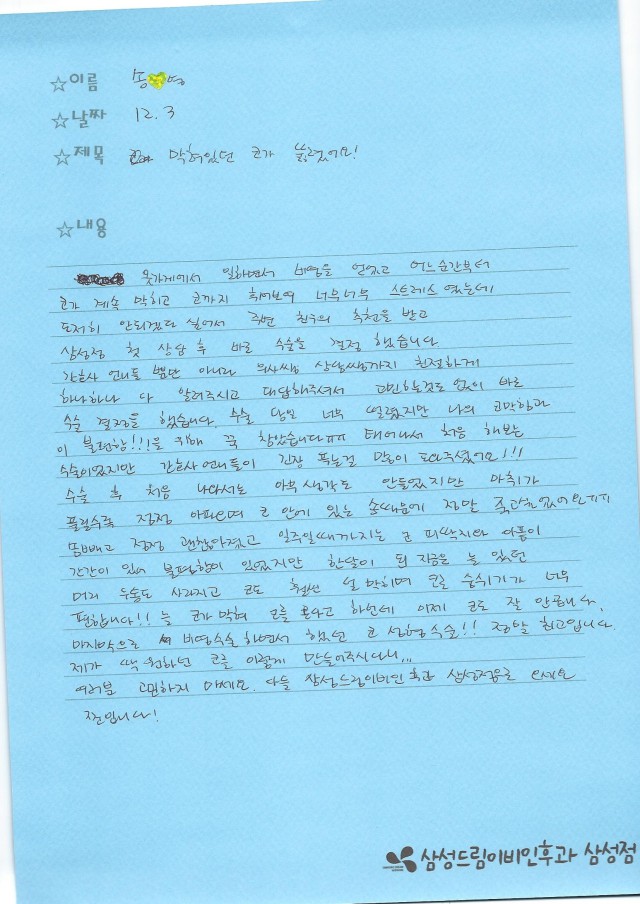 ☆이름 송 영
☆날짜 12.3
☆제목 막혀있던 코가 뚫렸어요!
☆내용
옷가게에서 일하면서 비염을 얻었고 어느순간부터
코가 계속 막히고 코까지 휘어보여 너무너무 스트레스였는데
도저히 안되겠다 싶어서 주변 친구의 추천을 받고
삼성점 첫 상담 후 바로 수술을 결정 했습니다
간호사 언니들 뿐만 아니라 의사쌤 상담쌤까지 친절하게
하나하나 다 알려주시고 대답해주셔서 고민하는것도 없이 바로
수술 결정을 했습니다. 수술 당일 너무 떨렸지만 나의 코막힘과
이 불편함!!!을 위해 꾹 참았습니다ㅠㅠ 태어나서 처음 해보는
수술이였지만 간호사 언니들이 긴장 푸는걸 많이 도와주셨어요!!!
수술 후 처음 나와서는 아무 생각도 안들었지만 마취가
풀릴수록 점점 아파오며 코 안에 있는 솜때문에 정말 죽고싶었어요ㅠㅠ
솜빼고 점점 괜찮아졌고 일주일째까지는 코 피딱지와 아픔이
간간이 있어 불편함이 있었지만 한달이 된 지금은 늘 있던
머리 두통도 사라지고 코도 훨씬 덜 막히며 코로 숨쉬기가 너무
편합니다!! 늘 코가 막혀 코를 곤다고 하던데 이제 코도 잘 안곱니다.
마지막으로 비염수술 하면서 했던 코 성형수술!! 정말 최고입니다.
제가 딱 원하던 코를 이렇게 만들어주시다니...
여러분 고민하지 마세요. 다들 삼성드림이비인후과 삼성점으로 오세요
짱입니다!
삼성드림이비인후과 삼성점